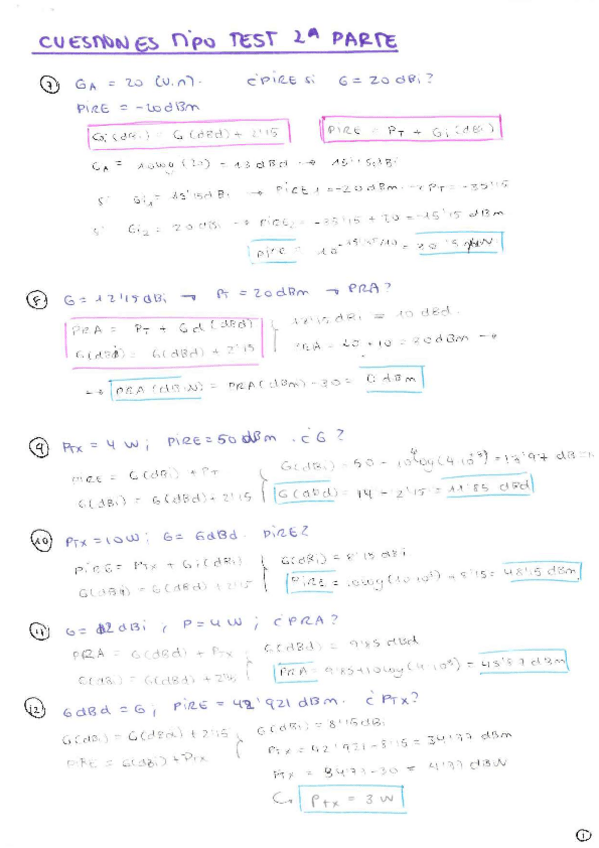 CUESTIONES TIPO TEST 2ª PARTE
7 GA = 20 (u.n). ¿PIRE si G = 20 dBi?
PIRE = -20dBm
Gi(dBi) = G(dBd) + 2'15 PIRE = PT + Gi(dBi)
GA = 10log(20) = 13 dBd → 15'15dBi
Si Gi1 = 15'15dBi → PIRE1 = -20dBm → PT = -35'15
Si Gi2 = 20dBi → PIRE2 = -35'15 + 20 = -15'15 dBm
PIRE = 10^-15'15/10 = 30'5 μW
8 G = 12'15 dBi → PT = 20dBm → PRA?
PRA = PT + Gd(dBd) 12'15 dBi = 10 dBd.
G(dBi) = G(dBd) + 2'15 PRA = 20 + 10 = 30dBm →
→ PRA(dBW) = PRA(dBm) - 30 = 0 dBm
9 Ptx = 4 W; PIRE = 50 dBm. ¿G?
PIRE = G(dBi) + PT G(dBi) = 50 - 10log(4·10^3) = 13'97 dB
G(dBi) = G(dBd) + 2'15 G(dBd) = 14 - 2'15 = 11'85 dBd
10 Ptx = 10W; G = 6dBd. PIRE?
PIRE = Ptx + Gi(dBi) G(dBi) = 8'15 dBi
G(dBi) = G(dBd) + 2'15 PIRE = 10log(10·10^3) + 8'15 = 48'15 dBm
11 G = 12 dBi, P = 4 W; ¿PRA?
PRA = G(dBd) + Ptx G(dBd) = 9'85 dBd
G(dBi) = G(dBd) + 2'15 PRA = 9'85 + 10log(4·10^3) = 45'87 dBm
12 6dBd = G, PIRE = 42'921 dBm. ¿Ptx?
G(dBi) = G(dBd) + 2'15 G(dBi) = 8'15dBi
PIRE = G(dBi) + Ptx Ptx = 42'921 - 8'15 = 34'77 dBm
Ptx = 34'77 - 30 = 4'77 dBW
Ptx = 3 W
1